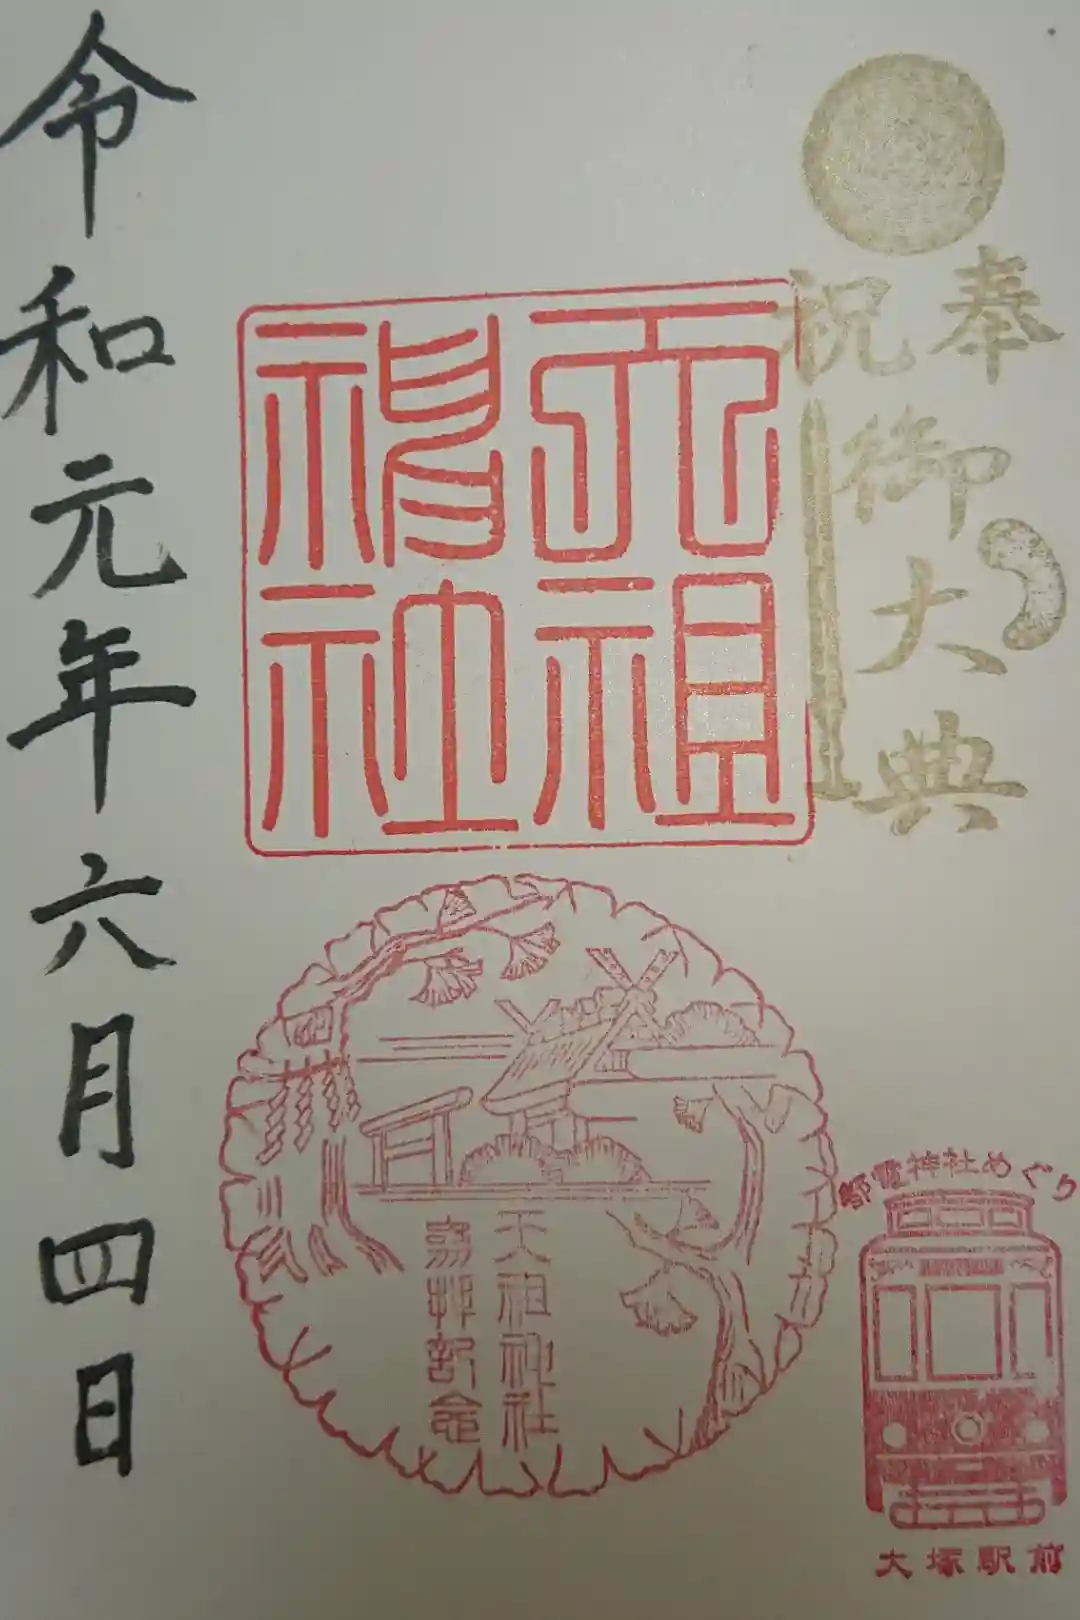 奉祝
御大典
天祖
神社
天祖神社
参拝記念
都電神社めぐり
大塚駅前
令和元年六月四日